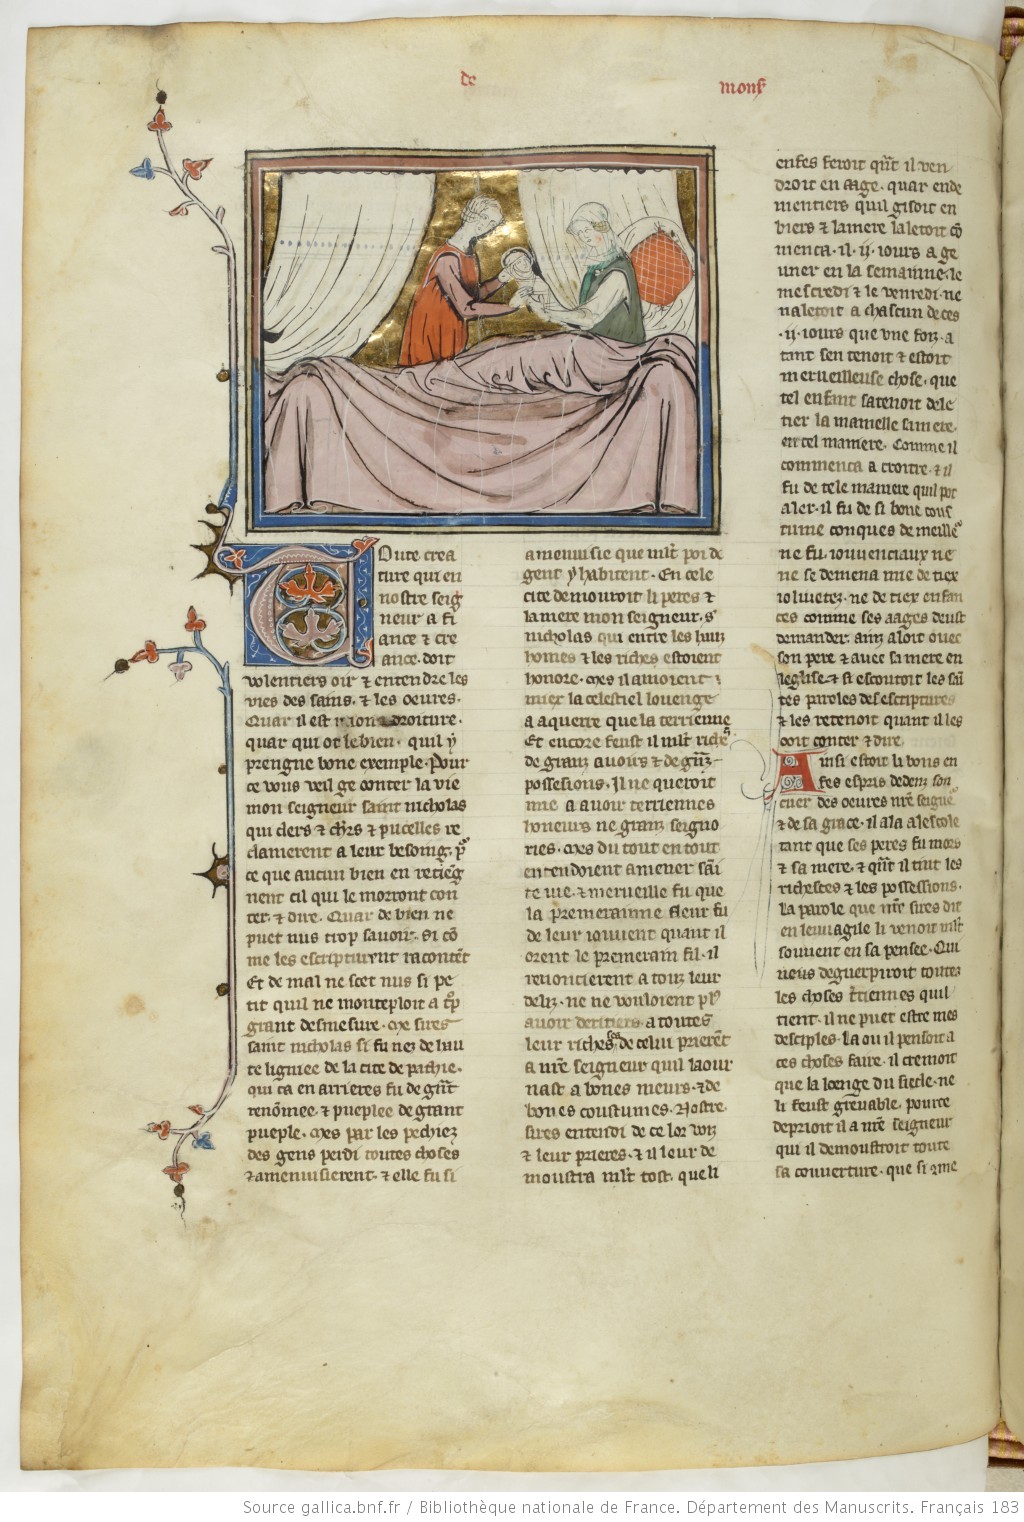 de
mons
Toute crea
ture qui en
nostre seig
neur a fi
ance ⁊ cre
ance. doit
volentiers oir ⁊ entendre les
vies des sains. ⁊ les oeures.
Quar il est raison ⁊ droiture.
quar qui ot le bien. quil y
prengne bone exemple. Pour
ce vous veil ge conter la vie
mon seigneur saint nicholas
qui clers ⁊ chrs ⁊ pucelles re
clamerent a leur besoing. p
ce que aucun bien en retieg
nent cil qui le morront con
ter. ⁊ dire. Quar de bien ne
puet nus trop savoir. si cō
me les escriptures racontēt
Et de mal ne scet nus si pe
tit quil ne monteploit a tp
grant desmesure. Me sires
saint nicholas si fu nez de hau
te ligniee de la cite de pathie.
qui ca en arrieres fu de grāt
renōmee. ⁊ pueplee de grant
pueple. Mes par les pechiez
des gens perdi toutes choses
⁊ amenuisierent. ⁊ elle fu si
amenuisie que mlt poi de
gent y habitent. En cele
cite demouroit li peres ⁊
la mere mon seigneur. s
nicholas qui entre les hauz
homes ⁊ les riches estoient
honore. Mes il amoient
miex la celestiel louenge
a aquerre que la terrienne
Et encore feust il mlt riches
de granz avoirs ⁊ de granz
possesions. Il ne queroit
mie a avoir terriennes
honeurs ne granz seigno
ries. Mes du tout en tout
entendoient a mener sāi
te vie. ⁊ merveille fu que
la premerainne fleur fu
de leur jouvent quant il
orent le premerain fil. il
renoncierent a touz leur
deliz. ne ne voulorent pl
avoir deritiers. a toutes
leur richeses de celui prierēt
a nr̄e seigneur quil laour
nast a bones meurs. ⁊ de
bones coustumes. Nostre
sires entendi de ce lor voiz
⁊ leur prieres. ⁊ il leur de
moustra mlt tost. que li
enfes feroit qnt il ven
droit en aage. quar ende
mentiers quil gisoit en
biers ⁊ la mere laletoit cō
menca. il .ij. jours a ge
uner en la semainne. le
mescredi ⁊ le venredi. ne
naletoit a chascun de ces
.ij. jours que une foiz. a
tant sen tenoit ⁊ estoit
merveilleuse chose. que
tel enfant satenoit dele
tier la mamelle sa mere.
en tel maniere. Comme il
commenca a croitre. ⁊ il
fu de tele maniere quil pot
aler. il fu de si bone cous
tume conques de meille
ne fu. jouvenciaux ne
ne se demena mie de tiex
jolivetez. ne de tiex enfan
ces comme ses aages deust
demander. ainz aloit avec
son pere ⁊ avec sa mere en
leglise. ⁊ si escoutoit les sāi
tes paroles des escriptures
⁊ les retenoit quant il les
ooit conter ⁊ dire.
Ainsi estoit li bons en
fes espris dedenz son
cuer des oeures nr̄e seigne
⁊ de sa grace. il ala a lescole
tant que ses peres fu mors
⁊ sa mere. ⁊ qnt il tint les
richeses ⁊ les possessions.
La parole que nr̄e sires dit
en leuvagile li venoit mlt
souvent en sa pensee. Qui
neus deguerpiroit toutez
les choses tr̄iennes quil
tient. il ne puet estre mes
desciples. La ou il pensoit a
ces choses faire. il cremoit
que la loenge du siecle. ne
li feust grevable. pource
deprioit il a nr̄e seigneur
qui il demoustroit toute
sa couverture. que si qme
Source gallica.bnf.fr / Bibliothèque nationale de France. Département des Manuscrits. Français 183